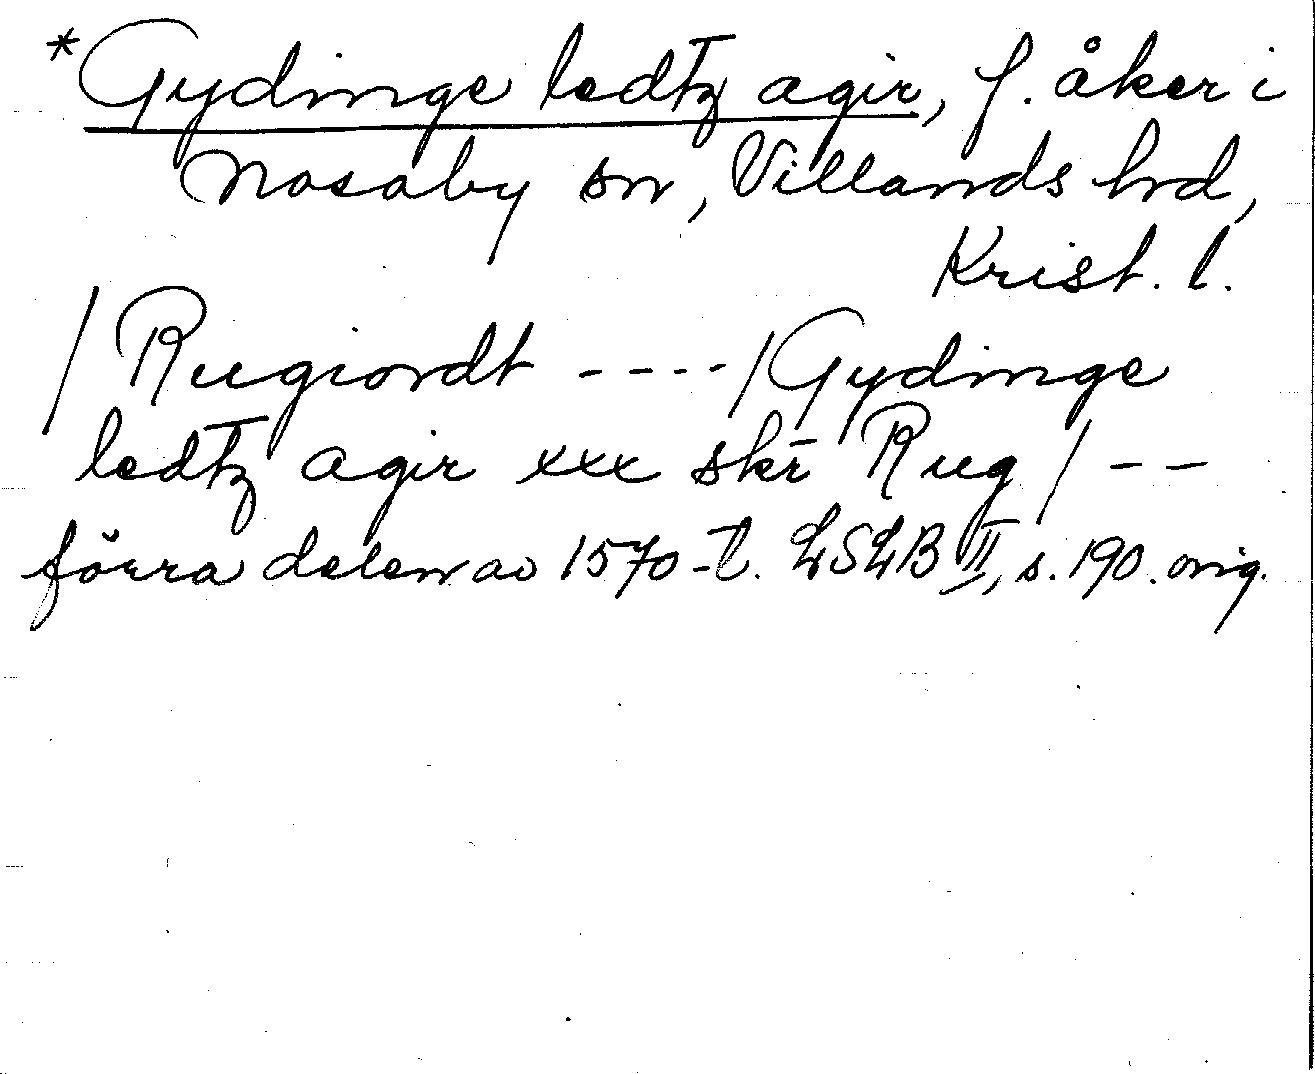 *Gydinge ledtz agir, f. åker i
Nosaby sn, Villands hrd,
Krist. l.
/ Rugiordt ---- / Gydinge
ledtz agir xxx skr̄ Rug / --
förra delen av 1570-t. LSLB II, s. 190. orig.